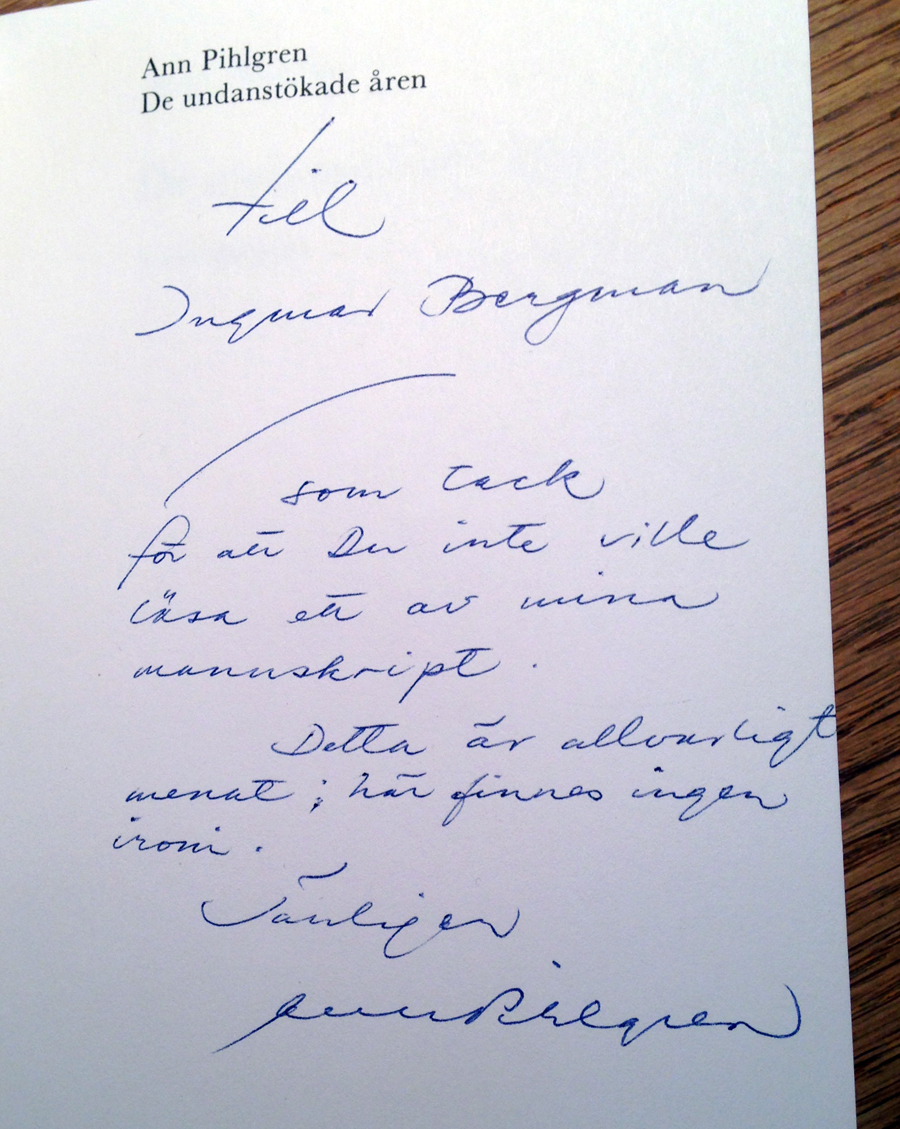 Ann Pihlgren
De undanstökade åren
till
Ingmar Bergman
som tack
för att Du inte ville
läsa ett av mina
manuskript.
Detta är allvarligt
menat; här finnes ingen
ironi.
Vänligen
Ann Pihlgren